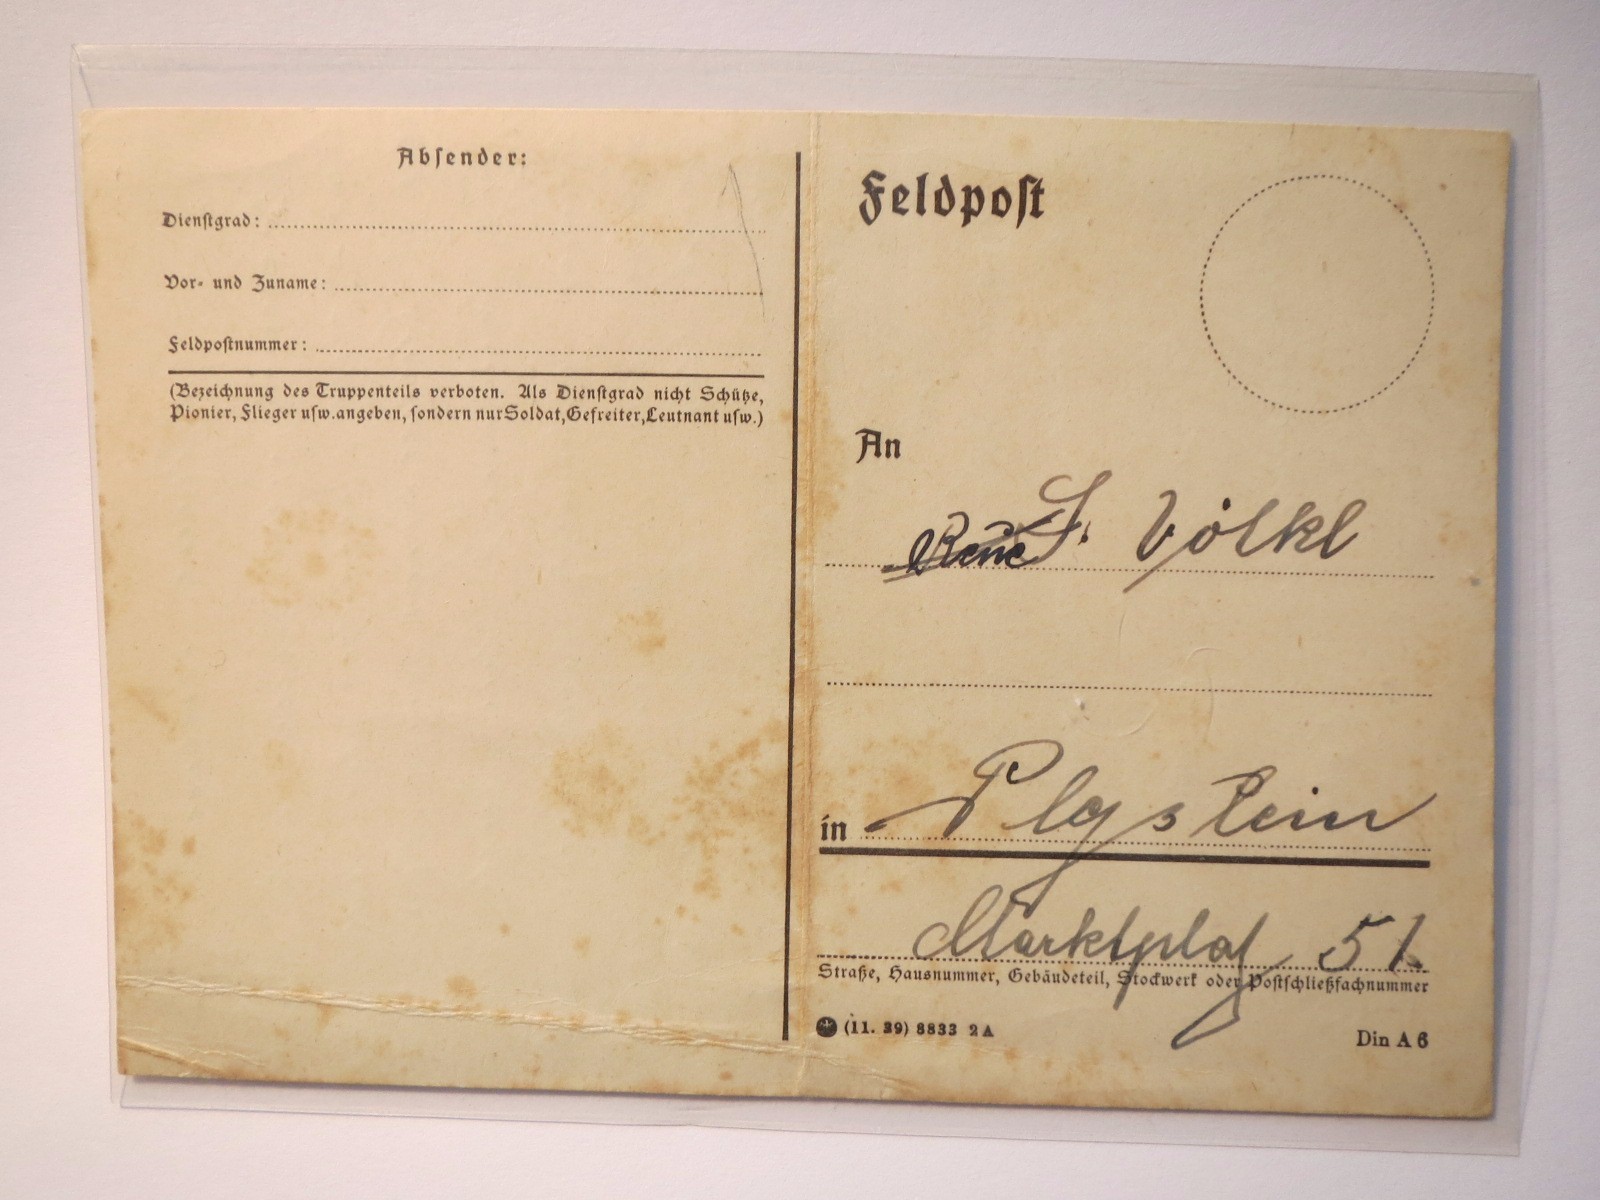 Absender:
Dienstgrad:
Vor- und Zuname:
Feldpostnummer:
(Bezeichnung des Truppenteils verboten. Als Dienstgrad nicht Schütze,
Pionier, Flieger usw. angeben, sondern nur Soldat, Gefreiter, Leutnant usw.)
Feldpost
An
Völkl
in Pleystein
Marktplatz 51
Straße, Hausnummer, Gebäudeteil, Stockwerk oder Postschließfachnummer
(11. 39) 8833 2 A
Din A 6